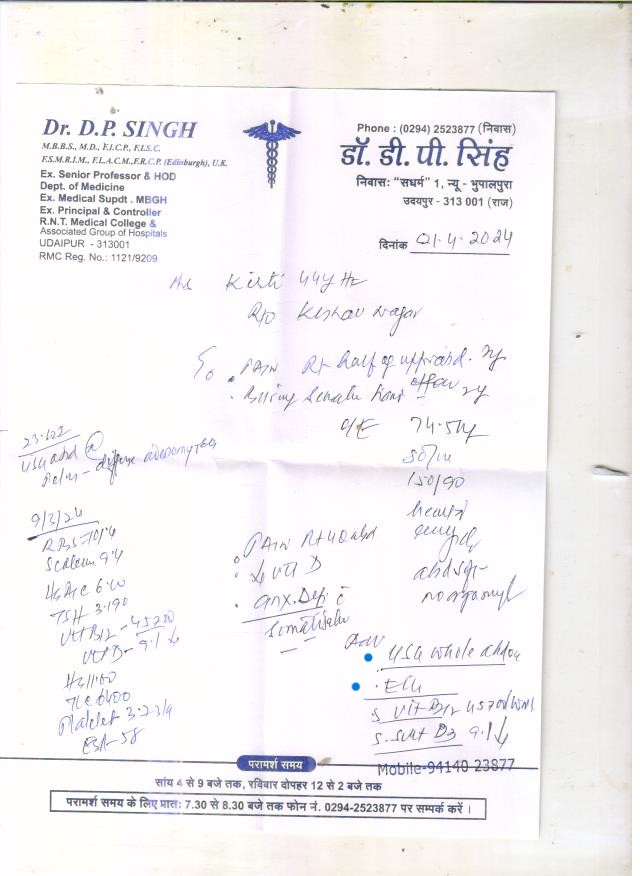 Dr. D.P. SINGH
M.B.B.S., M.D., F.I.C.P., F.I.S.C.
F.S.M.R.I.M., F.L.A.C.M.,F.R.C.P. (Edinburgh), U.K.
Ex. Senior Professor & HOD
Dept. of Medicine
Ex. Medical Supdt . MBGH
Ex. Principal & Controller
R.N.T. Medical College &
Associated Group of Hospitals
UDAIPUR - 313001
RMC Reg. No.: 1121/9209
Phone : (0294) 2523877 (निवास)
डॉ. डी. पी. सिंह
निवासः "सधर्म" 1, न्यू - भुपालपुरा
उदयपुर - 313 001 (राज)
दिनांक 01.4.2024
Kirti 44y
R/o Keshav Nagar
PAIN Rt half of upp abd.
O/E 74.5kg
80/m
150/90
heart
USG abd
Pelvis - diffuse adenomyosis
9/3/24
RBS-
S calcium 9.4
HbA1C 6.00
TSH 3.190
Vit B12 -
Vit D - 9.1 ↓
Hb 11.60
TLC 6400
Platelet
ESR-58
PAIN Rt UQ abd
↓ Vit D
anx. Dep. c
abd
no
Adv
USG whole abdo
ECG
S Vit B12
S. Vit D3 9.1↓
Mobile-94140 23877
परामर्श समय
सांय 4 से 9 बजे तक, रविवार दोपहर 12 से 2 बजे तक
परामर्श समय के लिए प्रातः 7.30 से 8.30 बजे तक फोन नं. 0294-2523877 पर सम्पर्क करें ।